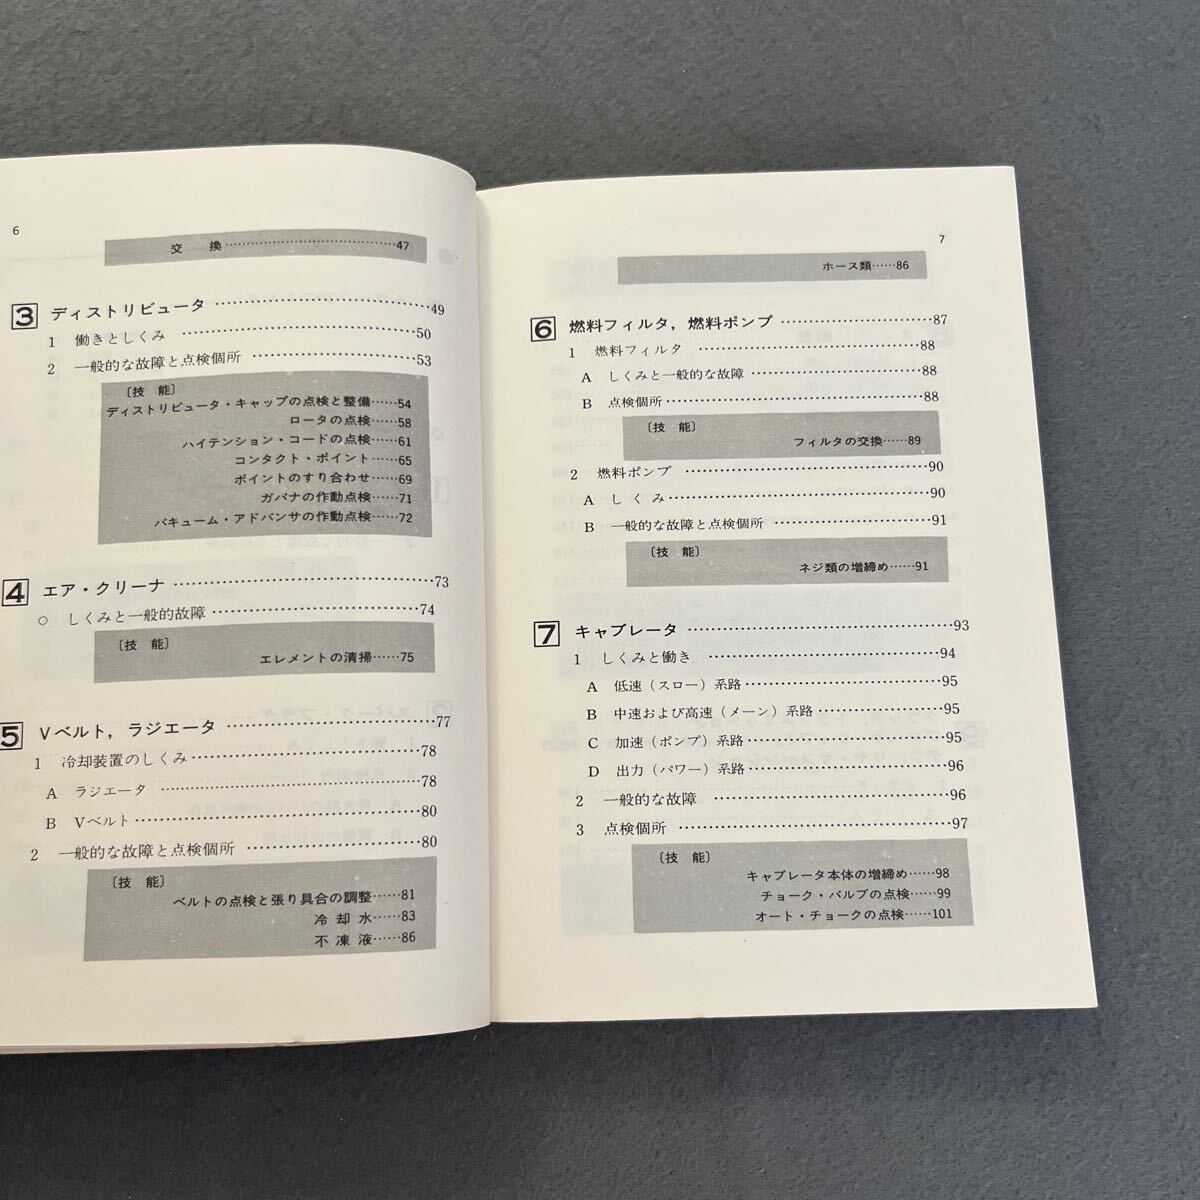 6
交　換……………………………47
3 ディストリビュータ……………………………49
1 働きとしくみ……………………………50
2 一般的な故障と点検個所……………………………53
〔技　能〕
ディストリビュータ・キャップの点検と整備……54
ロータの点検……58
ハイテンション・コードの点検……61
コンタクト・ポイント……65
ポイントのすり合わせ……69
ガバナの作動点検……71
バキューム・アドバンサの作動点検……72
4 エア・クリーナ……………………………73
○ しくみと一般的故障……………………………74
〔技　能〕
エレメントの清掃……75
5 Vベルト，ラジエータ……………………………77
1 冷却装置のしくみ……………………………78
A ラジエータ……………………………78
B Vベルト……………………………80
2 一般的な故障と点検個所……………………………80
〔技　能〕
ベルトの点検と張り具合の調整……81
冷 却 水……83
不 凍 液……86
7
ホース類……86
6 燃料フィルタ，燃料ポンプ……………………………87
1 燃料フィルタ……………………………88
A しくみと一般的な故障……………………………88
B 点検個所……………………………88
〔技　能〕
フィルタの交換……89
2 燃料ポンプ……………………………90
A し く み……………………………90
B 一般的な故障と点検個所……………………………91
〔技　能〕
ネジ類の増締め……91
7 キャブレータ……………………………93
1 しくみと働き……………………………94
A 低速（スロー）系路……………………………95
B 中速および高速（メーン）系路……………………………95
C 加速（ポンプ）系路……………………………95
D 出力（パワー）系路……………………………96
2 一般的な故障……………………………96
3 点検個所……………………………97
〔技　能〕
キャブレータ本体の増締め……98
チョーク・バルブの点検……99
オート・チョークの点検……101